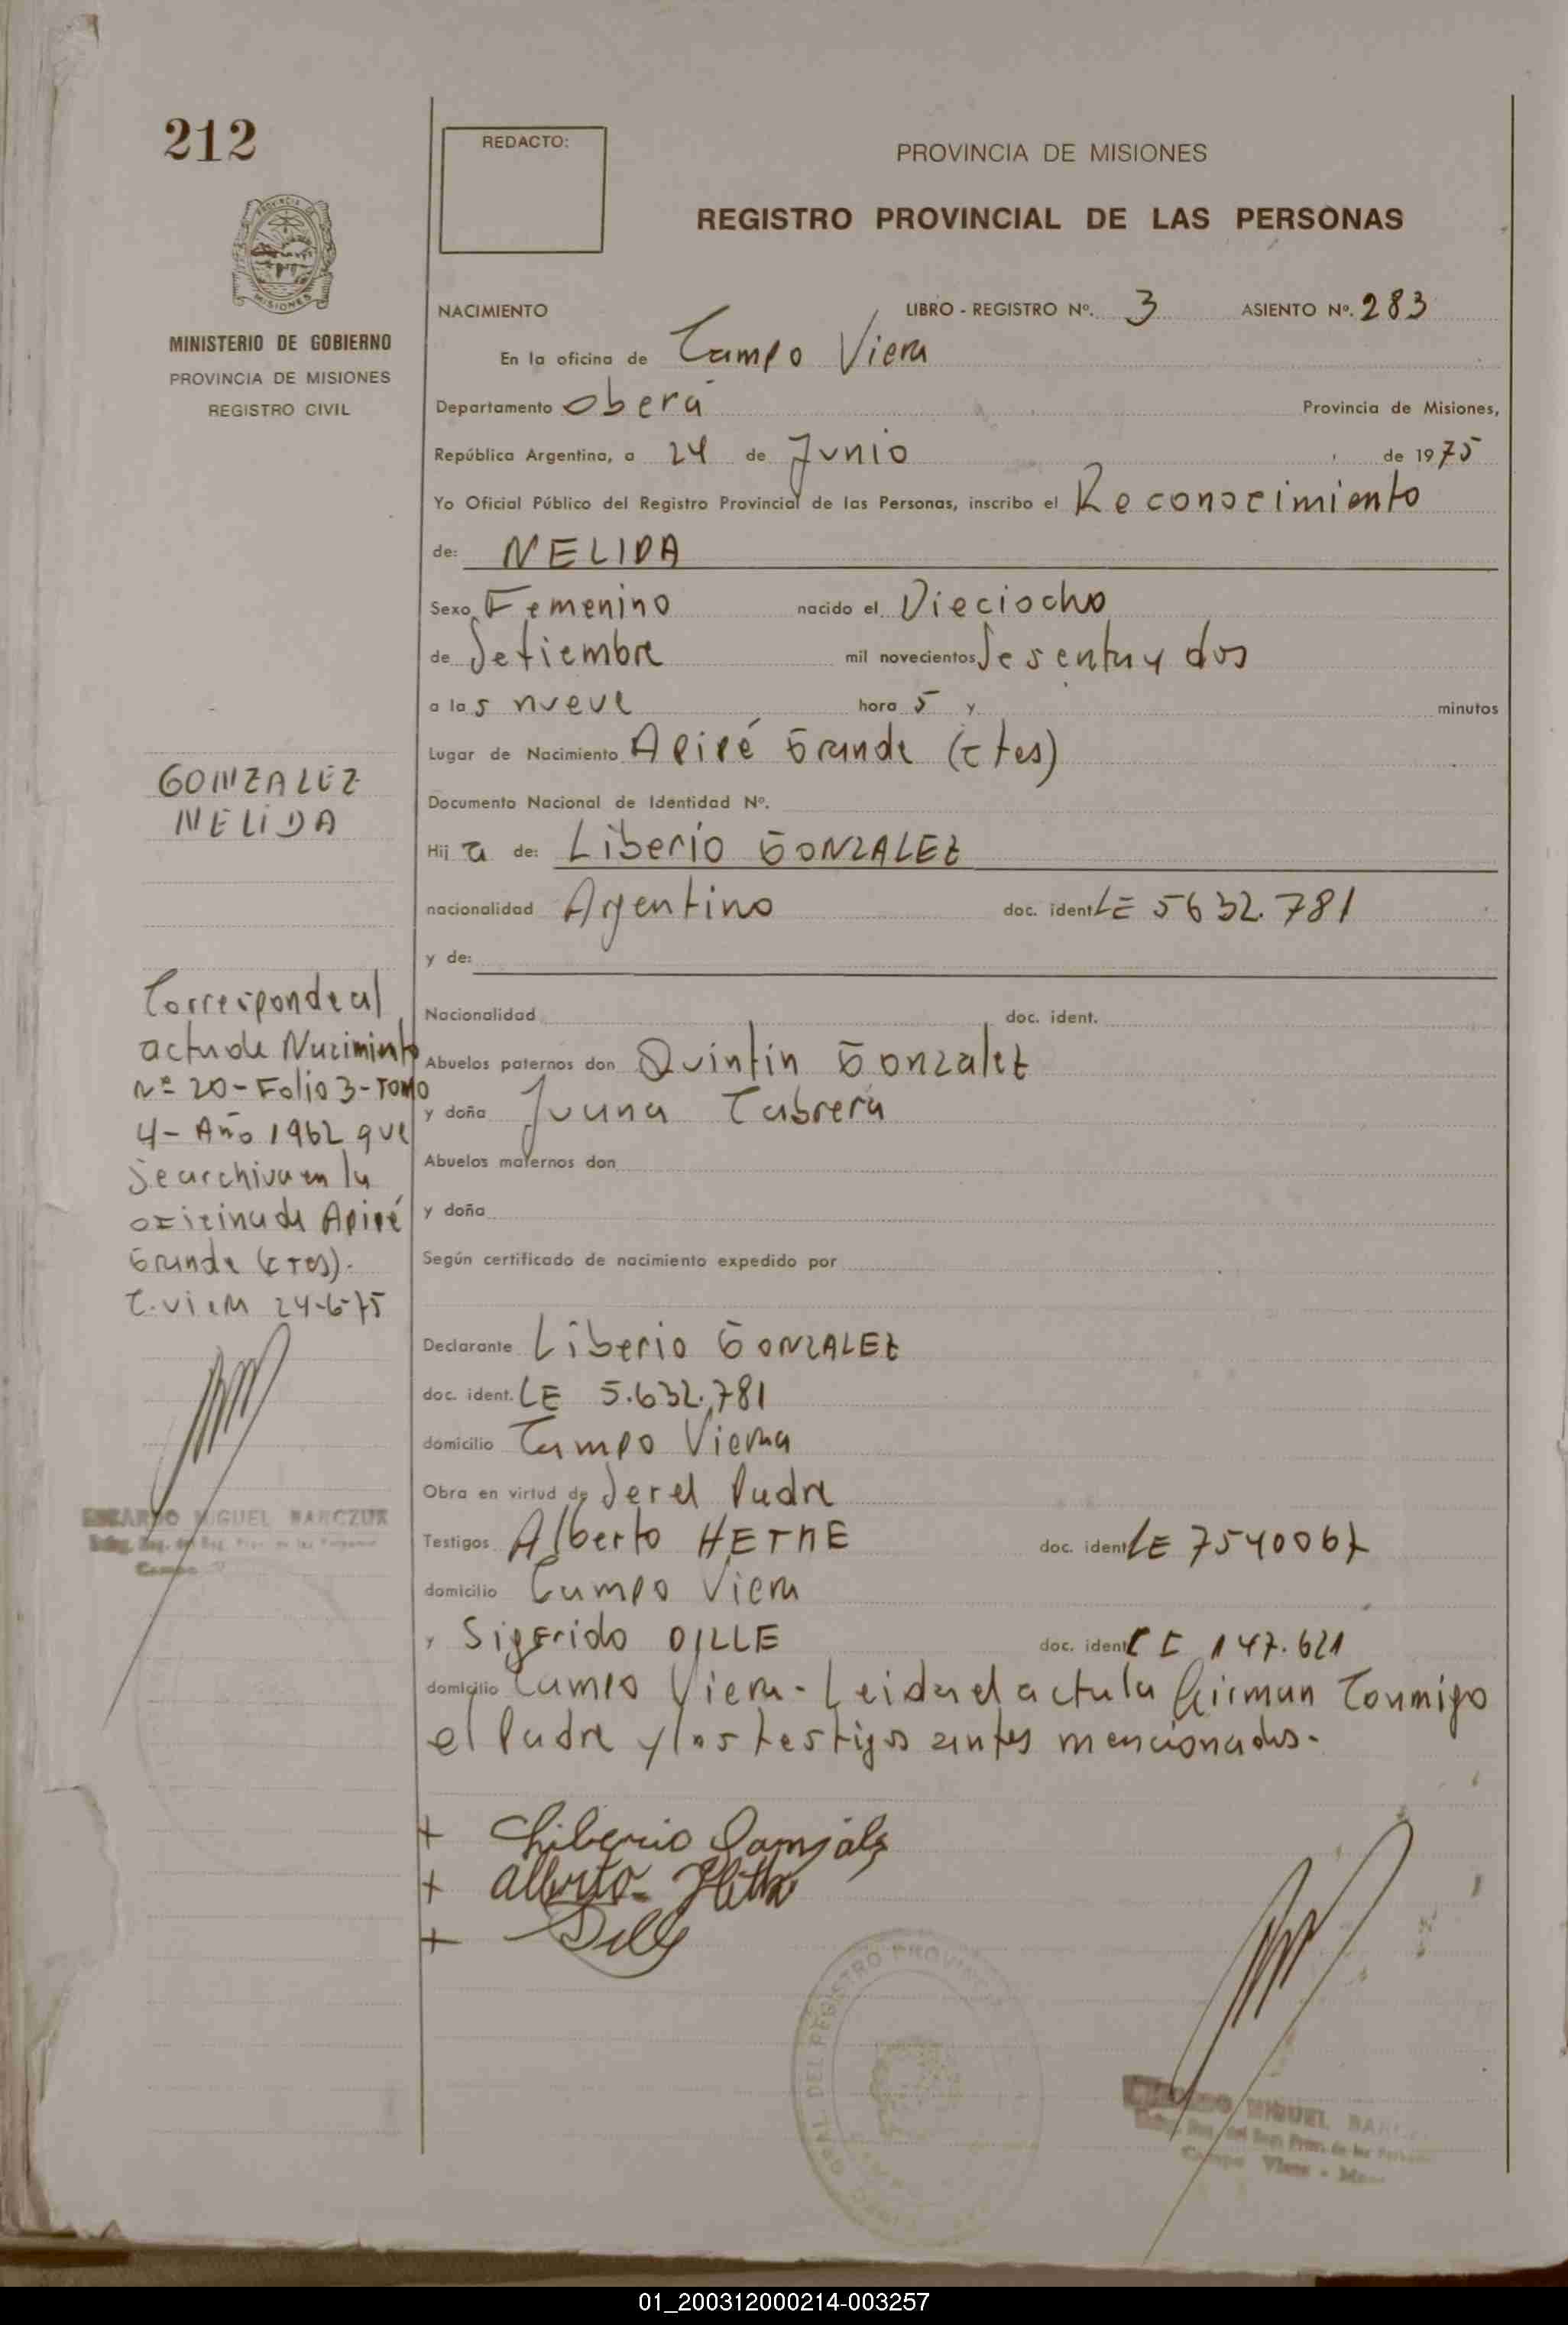 212
REDACTO:
PROVINCIA DE MISIONES
REGISTRO PROVINCIAL DE LAS PERSONAS
MINISTERIO DE GOBIERNO
PROVINCIA DE MISIONES
REGISTRO CIVIL
NACIMIENTO LIBRO - REGISTRO Nº. 3 ASIENTO Nº. 283
En la oficina de Campo Viera
Departamento Oberá Provincia de Misiones,
República Argentina, a 24 de Junio de 1975
Yo Oficial Público del Registro Provincial de las Personas, inscribo el Reconocimiento
de: NELIDA
Sexo Femenino nacido el Dieciocho
de Setiembre mil novecientos Sesenta y dos
a las nueve hora s y minutos
Lugar de Nacimiento Apipé Grande (Ctes)
Documento Nacional de Identidad Nº.
Hij a de: Liberio GONZALEZ
nacionalidad Argentino doc. ident LE 5632.781
y de:
Nacionalidad doc. ident.
Abuelos paternos don Quintin Gonzalez
y doña Juana Cabrera
Abuelos maternos don
y doña
Según certificado de nacimiento expedido por
Declarante Liberio GONZALEZ
doc. ident. LE 5.632.781
domicilio Campo Viera
Obra en virtud de Ser el Padre
Testigos Alberto doc. ident LE
domicilio Campo Viera
y Sigfrido DILLE doc. ident CI 147.621
domicilio Campo Viera - Leida el acta la firman Conmigo
el Padre y los testigos antes mencionados.
GONZALEZ
NELIDA
Corresponde al
acta de Nacimiento
Nº 20 - Folio 3 - Tomo
4 - Año 1962 que
se archiva en la
oficina de Apipé
Grande (Ctes).
C. Viera 24-6-75
MIGUEL BARCZUK
+ Liberio Gonzalez
+ Alberto
+ Dille
DEL REGISTRO PROVINCIAL
MIGUEL
Campo Viera
01_200312000214-003257